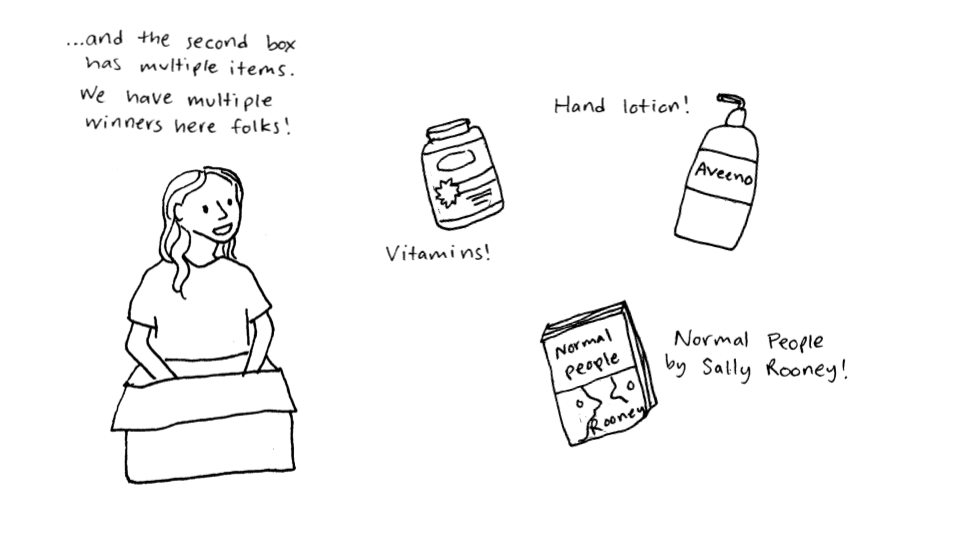 ...and the second box
has multiple items.
We have multiple
winners here folks!
Hand lotion!
Aveeno
Vitamins!
Normal
people
Rooney
Normal People
by Sally Rooney!